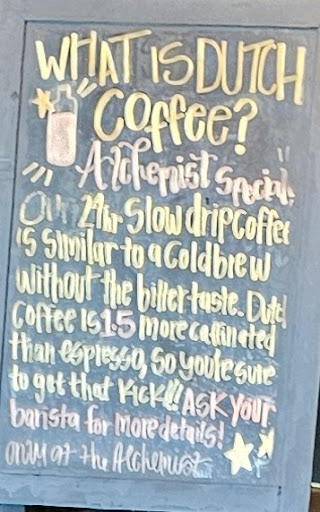 WHAT IS DUTCH
Coffee?
Alchemist Special
Our 24hr Slow drip Coffee
is similar to a Coldbrew
without the bitter taste. Dutch
Coffee is 1.5 more caffinated
than espresso, so you're sure
to get that Kick!!! ASK YOUR
barista for more details!
only at the Alchemist